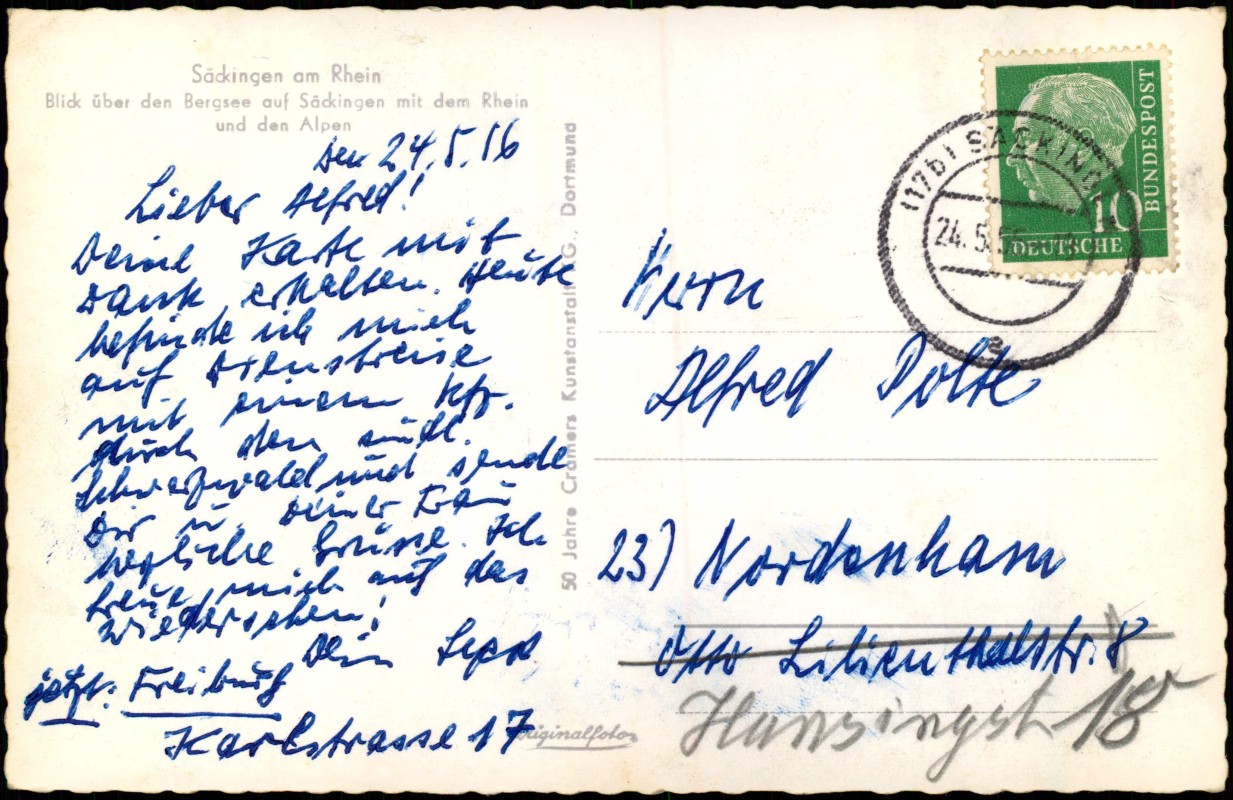 Säckingen am Rhein
Blick über den Bergsee auf Säckingen mit dem Rhein
und den Alpen
den 24.5.56
Lieber Alfred!
Deine Karte mit
Dank erhalten. Heute
befinde ich mich
auf Dienstreise
mit einem Kfz.
durch den südl.
Schwarzwald und sende
Dir u. Deiner Frau
herzliche Grüsse. Ich
freue mich auf das
Wiedersehen!
Dein Sepp
jetzt: Freiburg
Karlstrasse 17
50 Jahre Cramers Kunstanstalt KG., Dortmund
Originalfoto
(17b) SÄCKING
24.5.56
a
10
DEUTSCHE
BUNDESPOST
Herrn
Alfred Polte
23) Nordenham
Otto Lilienthalstr. 8
Hansingstr 18